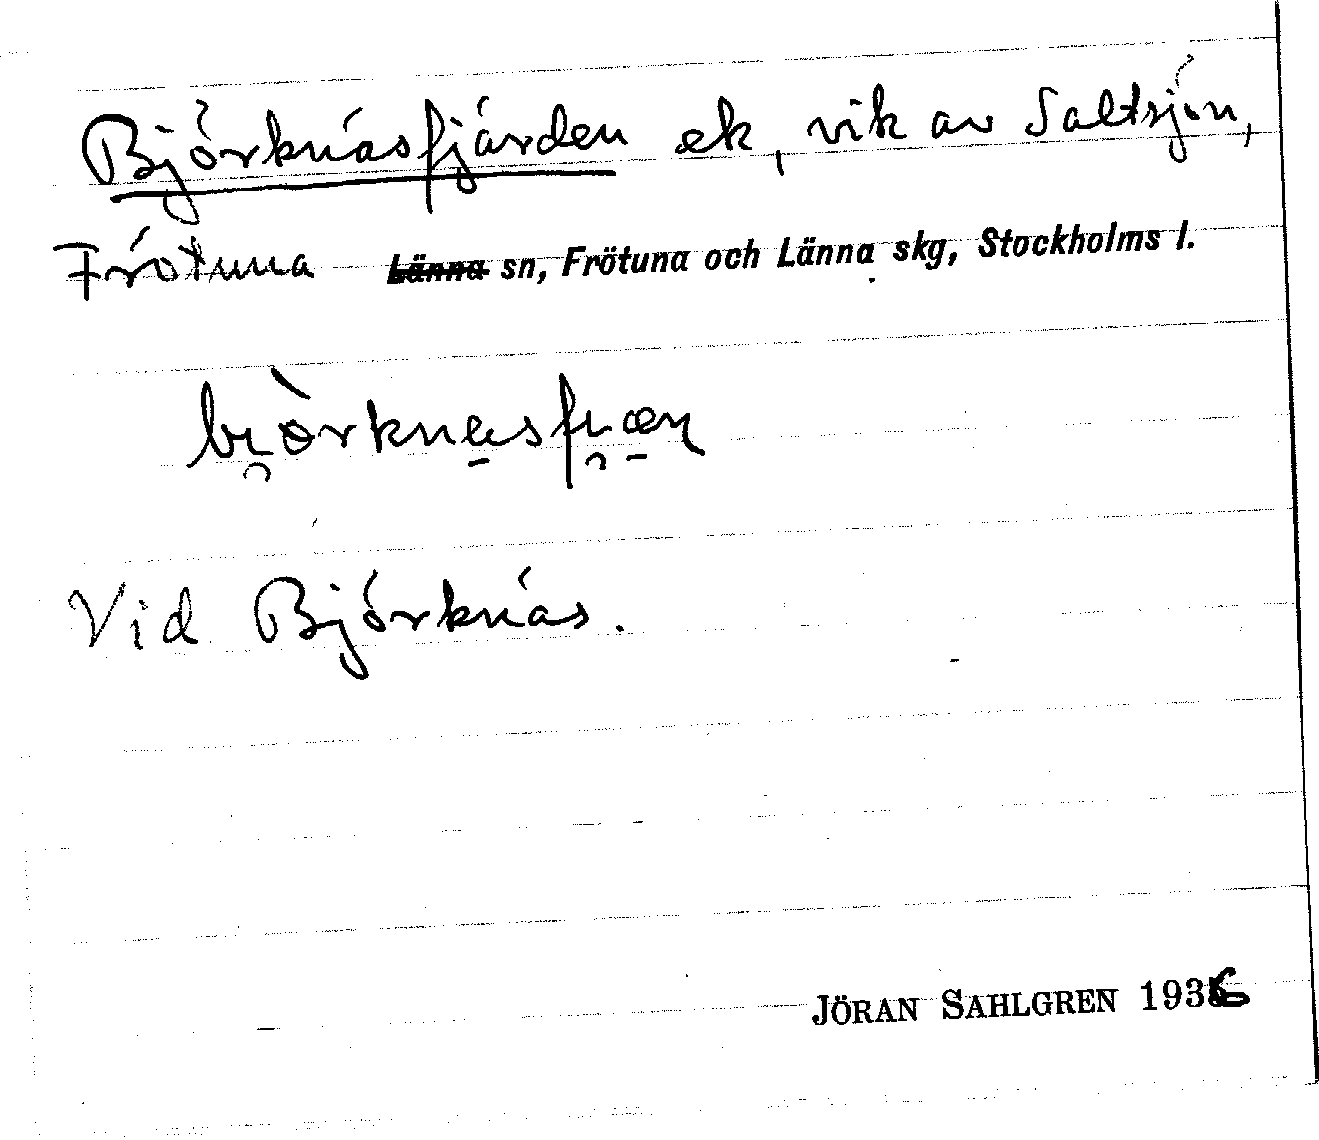 Björknäsfjärden ek, vik av Saltsjön,
Frötuna Länna sn, Frötuna och Länna skg, Stockholms l.
Vid Björknäs.
JÖRAN SAHLGREN 1936